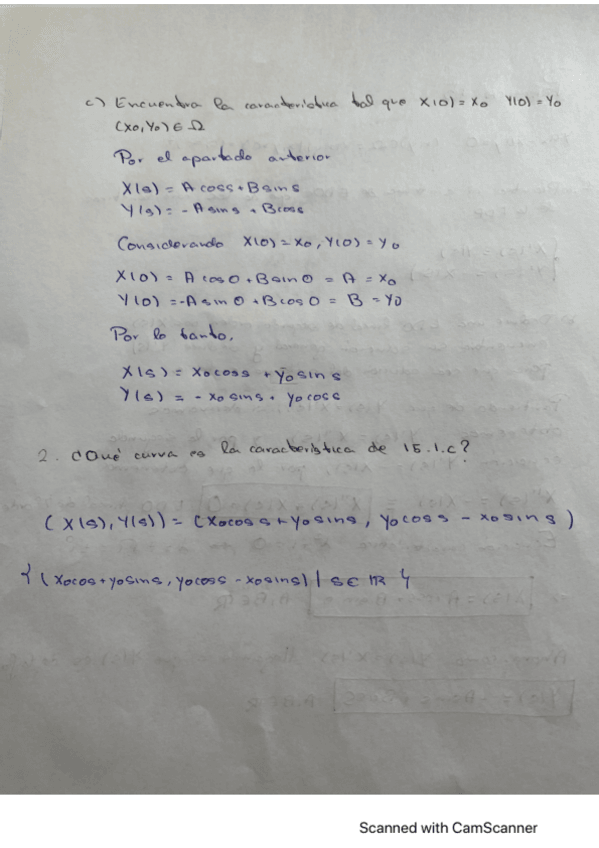 c) Encuentra la característica tal que X(0) = X0 Y(0) = Y0
(X0, Y0) ∈ Ω
Por el apartado anterior
X(s) = A cos s + B sin s
Y(s) = - A sin s + B cos s
Considerando X(0) = X0, Y(0) = Y0
X(0) = A cos 0 + B sin 0 = A = X0
Y(0) = -A sin 0 + B cos 0 = B = Y0
Por lo tanto,
X(s) = X0 cos s + Y0 sin s
Y(s) = - X0 sin s + Y0 cos s
2. ¿Qué curva es la característica de 15.1.c?
(X(s), Y(s)) = (X0 cos s + Y0 sin s, Y0 cos s - X0 sin s)
{(X0 cos + Y0 sin s, Y0 cos s - X0 sin s) | s ∈ IR}
Scanned with CamScanner